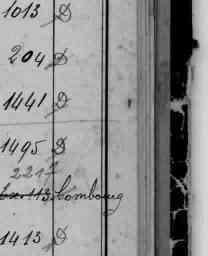 1013 D
204 D
1441 D
1495 D
221
113 Hombourg
1413 D